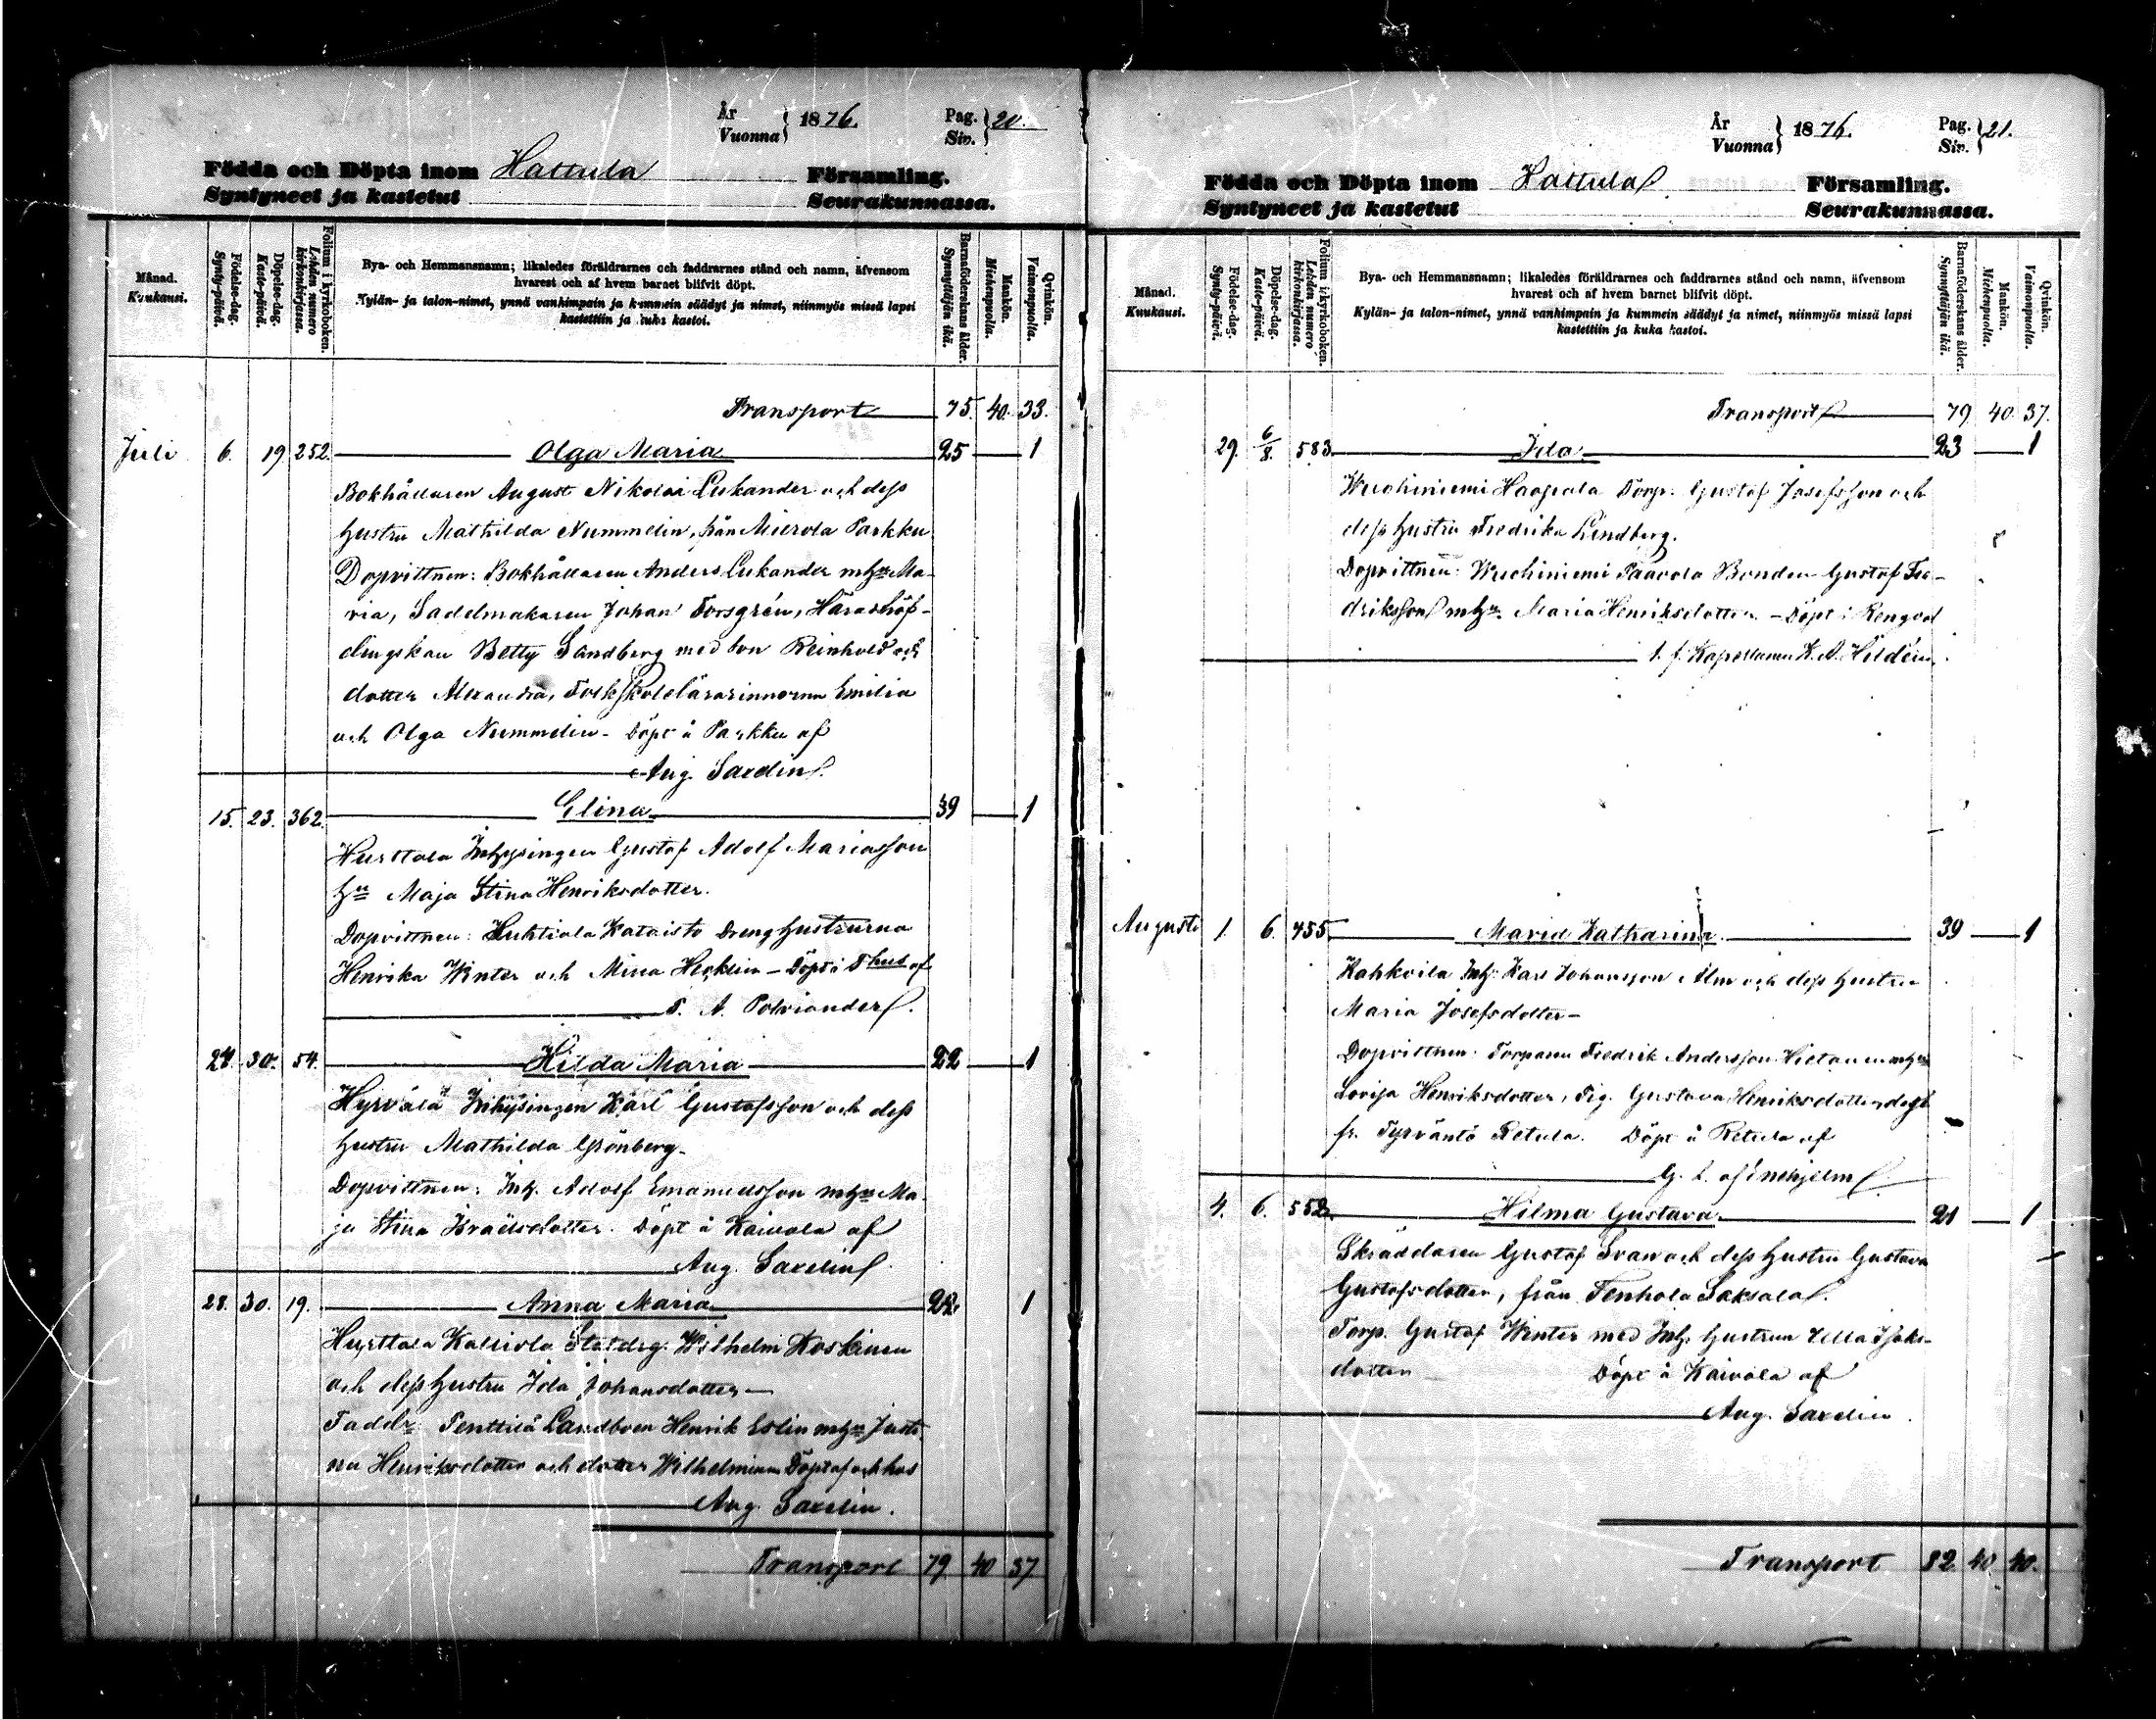 År
Vuonna } 1876.
Pag.
Siv. } 20.
Födda och Döpta inom Hattula Församling.
Syntyneet ja kastetut Seurakunnassa.
Månad.
Kuukausi.
Födelse-dag.
Synty-päivä.
Döpelse-dag.
Kaste-päivä.
Folium i kyrkoboken.
Lehden numero kirkonkirjassa.
Bya- och Hemmansnamn; likaledes föräldrarnes och faddrarnes stånd och namn, äfvensom
hvarest och af hvem barnet blifvit döpt.
Kylän- ja talon-nimet, ynnä vanhimpain ja kummein säädyt ja nimet, niinmyös missä lapsi
kastettiin ja kuka kastoi.
Barnaföderskans ålder.
Synnyttäjän ikä.
Mankön.
Miehenpuolia.
Qvinkön.
Vaimonpuolia.
Transport 75. 40. 33.
Juli 6. 19 252. Olga Maria 25 1
Bokhållaren August Nikolai Lukander och dess
hustru Mathilda Nummelin, från Mierola Parkku
Dopvittnen: Bokhållaren Anders Lukander m hu Ma-
ria, Sadelmakaren Johan Forsgrén, Häradshöf-
dingskan Betty Sandberg med son Reinhold och
dotter Alexandra, Folkskolelärarinnorna Emilia
och Olga Nummelin - Döpt å Parkku af
Aug. Saxelin.
15. 23. 362. Elina 39 1
Hurttala Inhysingen Gustaf Adolf Mariasson
hu Maja Stina Henriksdotter.
Dopvittnen: Huhtiala Kataisto Dreng hustrurna
Henrika Winter och Mina Hecklin - Döpt i Fhus af
F. A. Polviander.
24. 30. 54. Hilda Maria 22 1
Hyrvälä Inhysingen Karl Gustafsson och dess
hustru Mathilda Grönberg.
Dopvittnen: Inh. Adolf Emanuelsson m hu Ma-
ja Stina Israelsdotter. Döpt å Kaivola af
Aug. Saxelin
28. 30. 19. Anna Maria 22. 1
Hurttala Kalliola Statdrg. Wilhelm Koskinen
och dess hustru Ida Johansdotter -
Faddr: Penttilä Landboen Henrik Eslin m hu Justi-
na Henriksdotter och dotter Wilhelmina Döpt af och hos
Aug. Saxelin.
Transport 79 40 37
År
Vuonna } 1876.
Pag.
Siv. } 21.
Födda och Döpta inom Hattula Församling.
Syntyneet ja kastetut Seurakunnassa.
Månad.
Kuukausi.
Födelse-dag.
Synty-päivä.
Döpelse-dag.
Kaste-päivä.
Folium i kyrkoboken.
Lehden numero kirkonkirjassa.
Bya- och Hemmansnamn; likaledes föräldrarnes och faddrarnes stånd och namn, äfvensom
hvarest och af hvem barnet blifvit döpt.
Kylän- ja talon-nimet, ynnä vanhimpain ja kummein säädyt ja nimet, niinmyös missä lapsi
kastettiin ja kuka kastoi.
Barnaföderskans ålder.
Synnyttäjän ikä.
Mankön.
Miehenpuolia.
Qvinkön.
Vaimonpuolia.
Transport 79 40 37.
29. 6/8. 583. Ida 23 1
Wuohiniemi Haapala Torp. Gustaf Josefsson och
dess hustru Fredrika Lindberg.
Dopvittnen: Wuohiniemi Paavola Bonden Gustaf Fre-
driksson m hu Maria Henriksdotter. - Döpt i Rengo af
t. f. Kapellanen K. A. Hildén.
Augusti 1. 6. 455 Maria Katharina 39 1
Kahkoila Inh. Karl Johansson Alm och dess hustru
Maria Josefsdotter -
Dopvittnen: Torparen Fredrik Andersson Hietanen m hu
Lovisa Henriksdotter, Pig. Gustava Henriksdotter
fr. Tyrväntö Retula. Döpt å Retula af
G. L. af Enehjelm
4. 6. 552. Hilma Gustava 21 1
Skräddaren Gustaf Svan och dess hustru Gustava
Gustafsdotter, från Tenhola Saksala.
Torp. Gustaf Winter med Inh. hustrun Ulla Isaks-
dotter Döpt å Kaivola af
Aug. Saxelin.
Transport 82 40. 40.